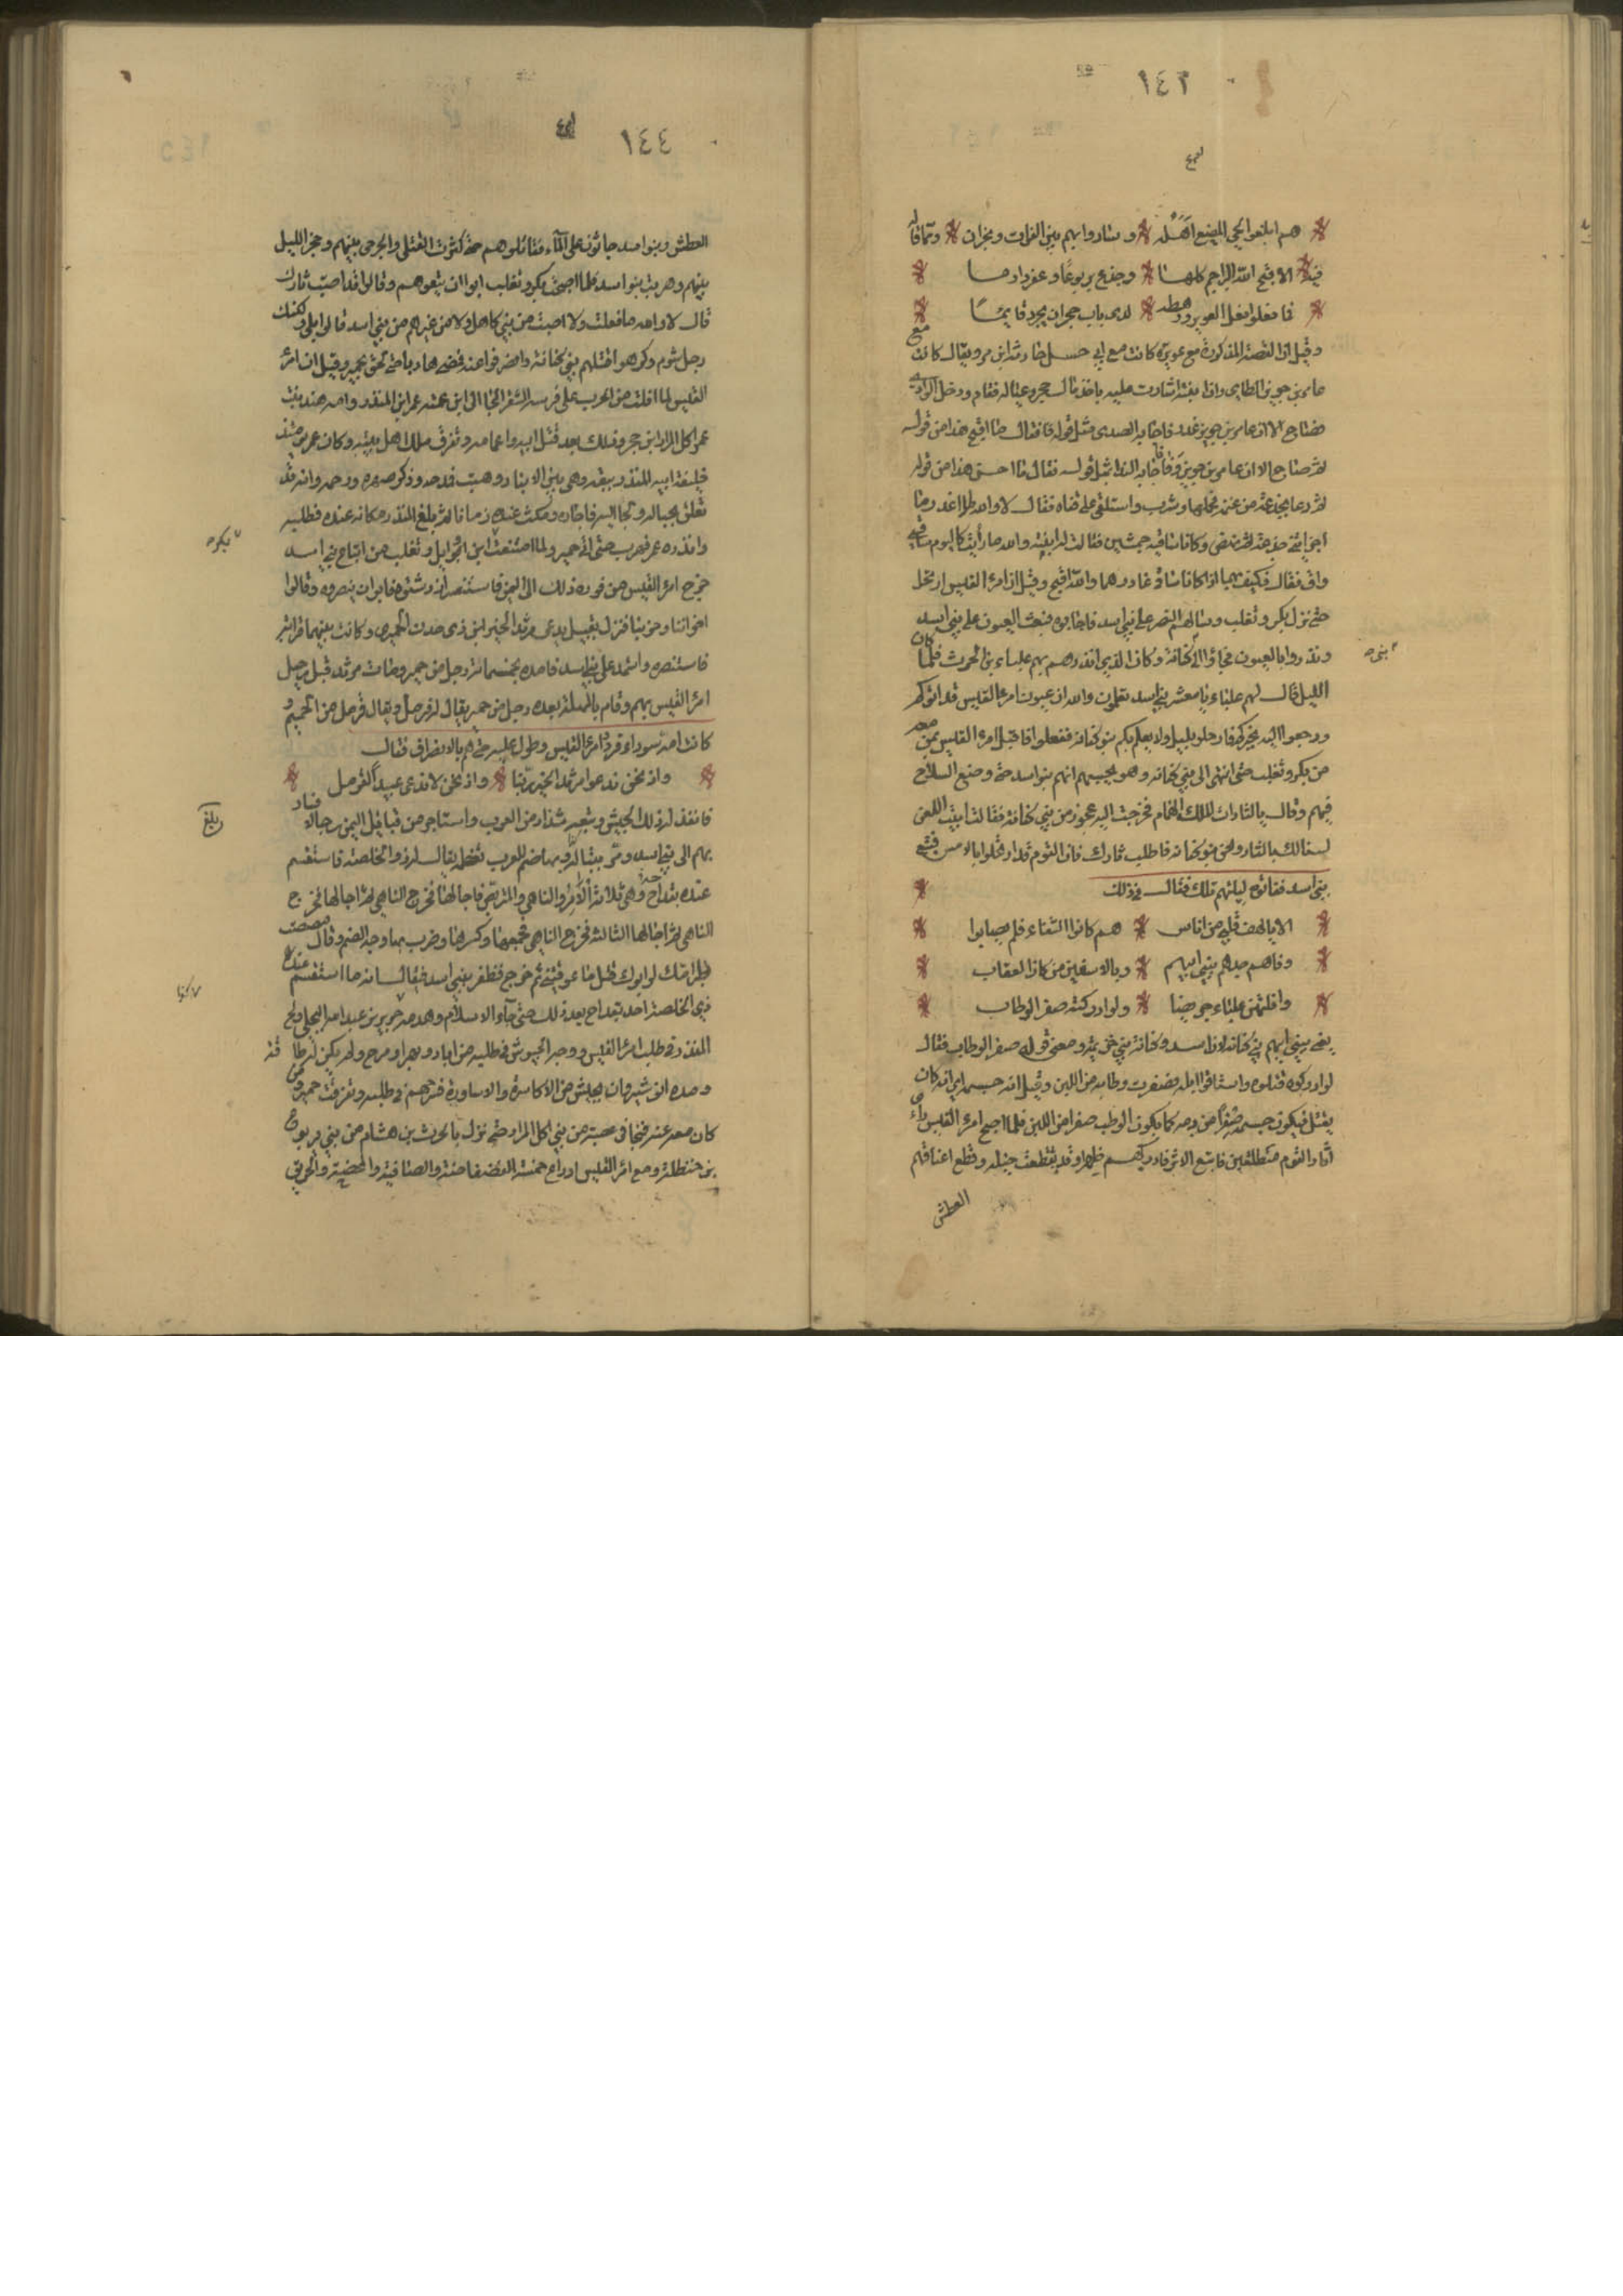 ١٤٣
هم ابلغوا الحي المضيع اهله وساروا بهم بين الفرات ونجران ومما قاله
فيه الا قبح الله البراجم كلها وجذع يربوعا وعفر دارما
فما فعلوا فعل العوير ورهطه لدى باب حجر ان يجرد قايما
وقيل ان القصة المذكورة مع عوير كانت مع ابي حنبل جارية ابن مر ويقال كانت مع
عامر بن جوين الطاي وان ابنته اشارت عليه باخذ مال حجر وعياله فقام ودخل الوادي
فصاح الا ان عامر بن جوين غدر فاجابه الصدى مثل قوله فقال ما اقبح هذا من قول
ثم صاح الا ان عامر بن جوين وفا فاجابه الصدا مثل قوله فقال ما احسن هذا من قول
ثم دعا بجذعة من غنم فحلبها وشرب واستلقى على قفاه فقال لا والله لا اغدر ما
اجزاتني جذعة ثم نهض وكانت ساقيه حمشين فقالت ابنته والله ما رأيت كاليوم ساقي
واف فقال فكيف بهما اذا كانا ساقي غادر هما والله اقبح وقيل ان امرء القيس ارتحل
حتى نزل ببكر وتغلب وسالهم النصر على بني اسد فاجابوه فبعث العيون على بني اسد
ونذروا بالعيون فلجاوا الى كنانة وكان الذي انذرهم بهم علباء بن الحرث فلما كان
بني
الليل قال لهم علباء يا معشر بني اسد تعلمون والله ان عيون امرء القيس قد اتوكم
ورجعوا اليه بخبركم فارحلوا بليل ولا يعلم بكم بنو كنانة ففعلوا واقبل امرء القيس بمن معه
من بكر وتغلب حتى انتهى الى بني كنانة وهو يحسبهم انهم بنو اسد حتى وضع السلاح
فيهم وقال يالثارات الملك الهمام فخرجت اليه عجوز من بني كنانة فقالت ابيت اللعن
لسنا لك بالثار ونحن بنو كنانة فاطلب ثارك فان القوم قد ارتحلوا بالامس فتتبع
بني اسد ففاتوه ليلتهم تلك فقال في ذلك
الا يالهف قلبي من اناس هم كانوا الشفاء فلم يصابوا
وقاهم جدهم ببني ابيهم وبالاشقين من كان العقاب
وافلتهن علباء جريضا ولو ادركته صفر الوطاب
يعني ببني ابيهم بني كنانة لان اسد وكنانة بني خزيمة ومعنى قوله صفر الوطاب فقال
لو ادركوه قتلوه واستاقوا ابله فصفرت وطابه من اللبن وقيل انه جسمه اي انه كان
يقتل فيكون جسمه صفرا من دمه كما يكون الوطب صفرا من اللبن فلما اصبح امرء القيس راى
آثار القوم منطلقين فاتبع الاثر فادركهم ظهرا وقد تقطعت خيله وقطع اعناقهم
العطش
١٤٤
العطش وبنو اسد جاثون على الماء فقاتلوهم حتى كثرت القتلى والجرحى بينهم وحجز الليل
بينهم وهربت بنو اسد فلما اصبحت بكر وتغلب ابوا ان يتبعوهم وقالوا قد اصبت ثارك
قال لا والله ما فعلت ولا اصبت من بني كاهل ولا من غيرهم من بني اسد قالوا بلى ولكنك
رجل شوم وكرهوا قتلهم بني كنانة وانصرفوا عنه فمضى هاربا حتى لحق بحمير وقيل ان امرء
القيس لما افلت من الحرب على فرسه الشقرا لجا الى ابن عمته عمر ابن المنذر وامه هند بنت
عمر اكل المرار ابن حجر وذلك بعد قتل ابيه واعمامه وتفرق ملك اهل بيته وكان عمر يومئذ
خليفة ابيه المنذر ببقة وهي بين الانبار وهيت فمدحه وذكر صهره ورحمه وانه قد
تعلق بحباله ولجا اليه فاجاره ومكث عنده زمانا ثم بلغ المنذر مكانه عنده فطلبه
وانذره عمر فهرب حتى اتى حمير ولما امتنعت ابن وايل وتغلب من اتباع بني اسد
بكر
خرج امرء القيس من فوره ذلك الى اليمن فاستنصر ازد شنوة فابوا ان ينصروه وقالوا
اخواننا وجيراننا فنزل بقيل يدعى مرثد الخير ابن ذي جدن الحميري وكانت بينهما قرابة
فاستنصره واستمده على بني اسد فامده بخمسمائة رجل من حمير ومات مرثد قبل رحيل
امرء القيس بهم وقام بالمملكة بعده رجل من حمير يقال له قرمل ويقال قرمل من الحميم و
كانت امه سوداء فردد امرء القيس وطول عليه حتى هم بالانصراف فقال
واذ نحن ندعو مرثد الخير ربنا واذ نحن لا ندعى عبيدا لقرمل
فانفذ له ذلك الجيش وتبعه شذاذ من العرب واستاجر من قبايل اليمن رجالا فسار
بهم الى بني اسد ومر بتبالة وبها صنم للعرب تعظمه يقال له ذو الخلصة فاستقسم
بلغ
عنده بقداحه وهي ثلاثة الآمر والناهي والمتربص فاجالها فخرج الناهي ثم اجالها فخرج
الناهي ثم اجالها الثالثة فخرج الناهي فجمعها وكسرها وضرب بها وجه الصنم وقال مصصت
بظر امك لو ابوك قتل ما عوقتني ثم خرج فظفر ببني اسد فيقال انه ما استقسم عند
ذي الخلصة احد بقداح بعد ذلك حتى جاء الاسلام وهدمه جرير بن عبد الله البجلي والح
المنذر في طلب امرء القيس ووجه الجيوش في طلبه من اياد وبهرا وتنوخ ولم يكن لهم طاقة
وامده انوشيروان بجيش من الاكاسرة والاساورة فسرحهم في طلبه وتفرقت حمير ومن
كان معه عنه فنجا في عصبة من بني اكل المرار حتى نزل بالحرث بن هشام من بني يربوع
بن حنظلة ومع امرء القيس ادراع خمسة الفضفاضة والصافية والمحصنة والخريق